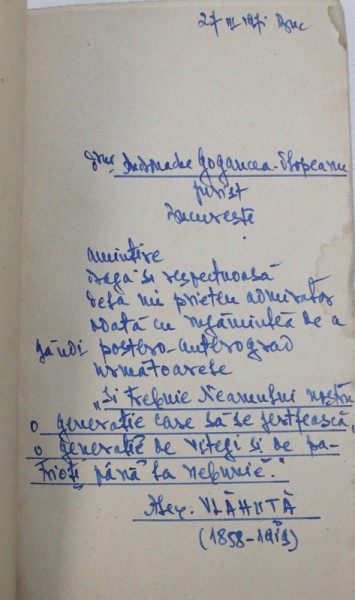 27 III 1971 Buc
Dnei Andromache Gogancea-Slopeanu
Bucureste
amintire
dragă si respectuoasă
dela un prieten admirator
odată cu rugămintea de a
gândi postero-anterograd
următoarele
„Si trebuie Neamului nostru
o generatie care să se jertfească,
o generatie de viteji si de pa-
trioti până la nebunie."
Alex. VLĂHUTĂ
(1858-1919)